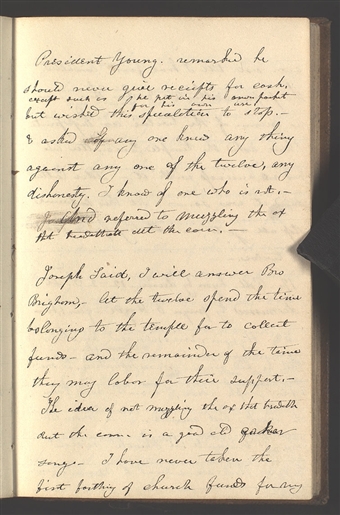 President Young. remarked he
should never give receipts for cash,
except such as he put in his own pocket
for his own use
but wished this speculation to stop.—
& asked if any one knew any thing
against any one of the twelve, any
dishonesty. I know of one who is not.—
referred to muzzling the ox
that treadeth out the corn.—
Joseph Said, I will answer Bro
Brigham,— let the twelve spend the time
belonging to the temple for to collect
funds— and the remainder of the time
they may labor for their support.—
The idea of not muzzling the ox that treadeth
out the corn. is a good old quaker
song. I have never taken the
first farthing of church funds for my